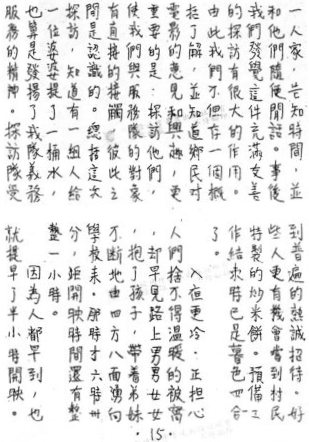 一人家,告知時間,並
和他們隨便閒話。事後
我們發覺這件充滿友善
的探訪有很大的作用。
由此我們不但存一個概
括了解,並知道鄉民對
電務的意見和興趣,更
重要的是:探訪他們,
使我們與服務隊的對象
有直接的接觸,彼此之
間是認識的。總括這次
探訪,知道有一組人給
一位婆婆提了一桶水,
也算是發揚了我隊義務
服務的精神。探訪隊受
到普遍的熱誠招待。好
些人更有機會嚐到村民
特製的炒米餅。預備工
作結束時已是暮色四合
了。
入夜更冷,正担心
人們捨不得溫暖的被窩
,卻早見路上男男女女
,抱了孩子,帶着弟妹
不斷地由四方八面湧向
學校來。那時才六時卅
分,距開映時間還有整
整一小時。
因為人都早到,也
就提早了半小時開映。
·15·